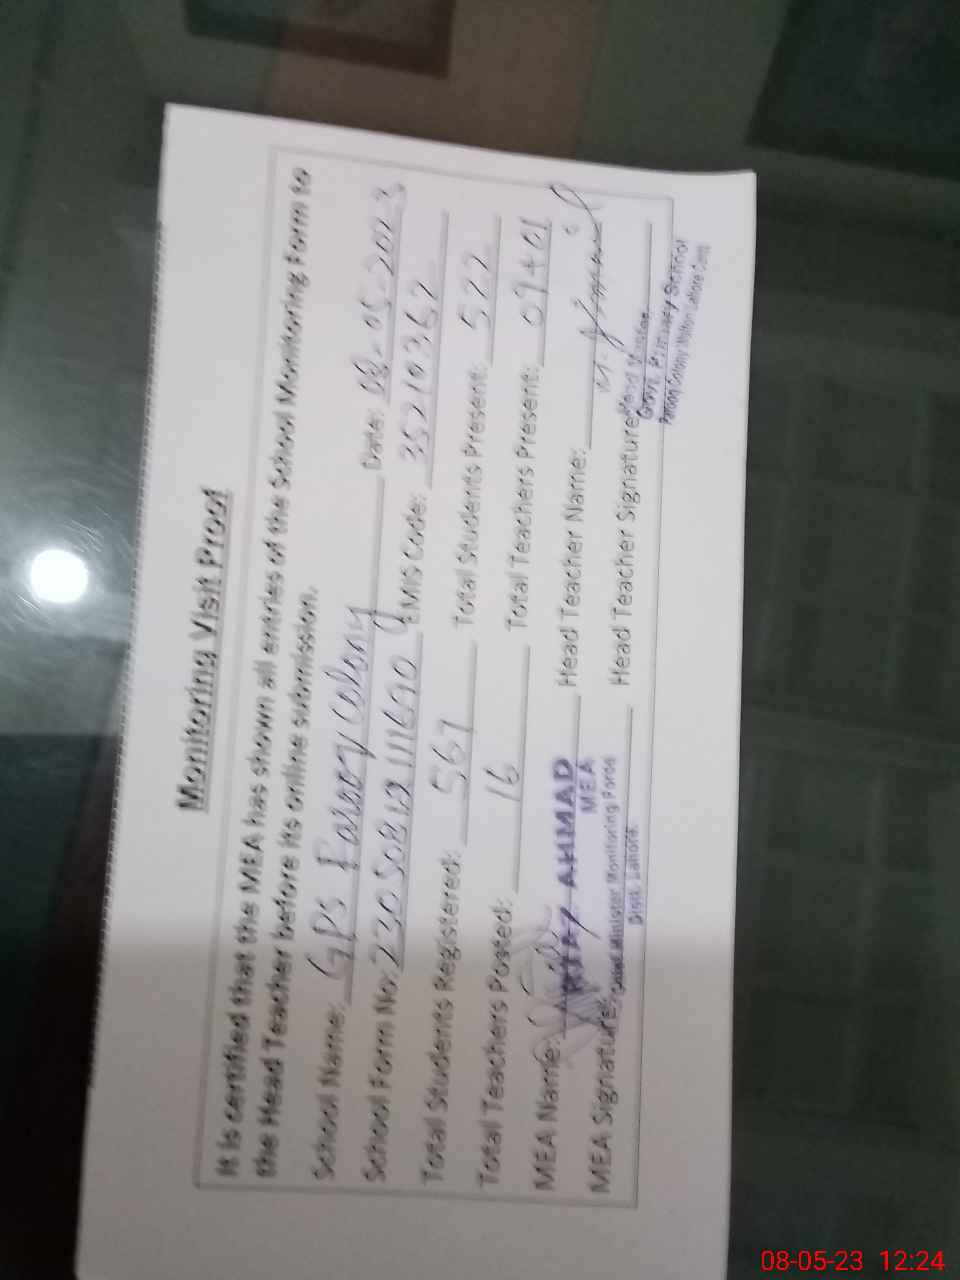 Monitoring Visit Proof
It is certified that the MEA has shown all entries of the School Monitoring Form to
the Head Teacher before its online submission.
School Name: GPS Farooq Colony Date: 08-05-2023
School Form No: EMIS Code: 35210362
Total Students Registered: 567 Total Students Present: 522
Total Teachers Posted: 16 Total Teachers Present: 09+01
MEA Name: RIAZ AHMAD Head Teacher Name:
MEA
MEA Signature: Head Teacher Signature: Head
Chief Minister Monitoring Force
Distt. Lahore.
Govt. Primary School
Colony Walton Lahore Cantt
08-05-23 12:24